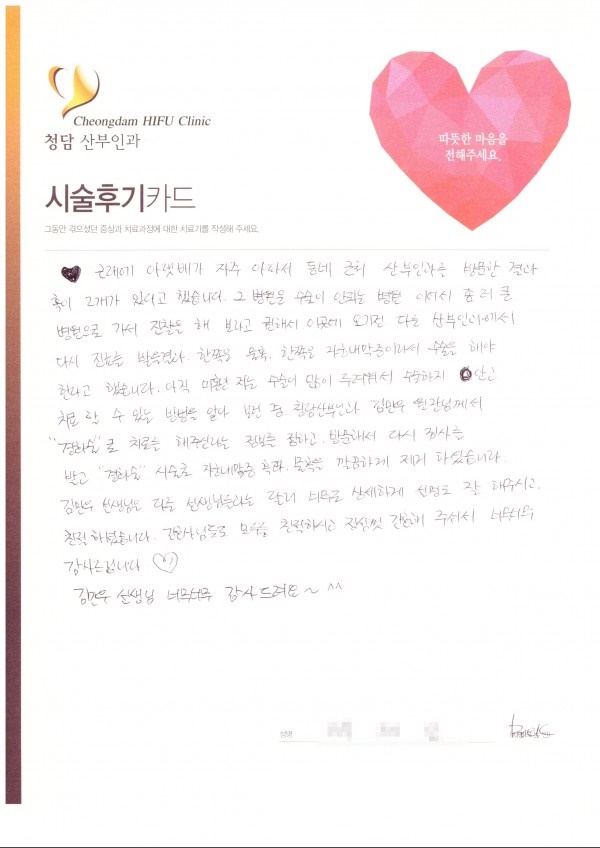 Cheongdam HIFU Clinic
청담 산부인과
따뜻한 마음을
전해주세요.
시술후기카드
그동안 겪으셨던 증상과 치료과정에 대한 치료기를 작성해 주세요.
근래에 아랫배가 자주 아파서 동네 근처 산부인과를 방문한 결과
혹이 2개가 있다고 했습니다. 그 병원은 수술이 안되는 병원 이여서 좀 더 큰
병원으로 가서 진찰을 해 보라고 권해서 이곳에 오기전 다른 산부인과에서
다시 진료를 받은결과. 한쪽은 물혹. 한쪽은 자궁내막증이라서 수술을 해야
한다고 했습니다. 아직 미혼인 저는 수술이 많이 두려워서 수술하지 않고
치료 할 수 있는 방법을 알아 보던 중 청담산부인과 김민우 원장님께서
"경화술"로 치료를 해주신다는 정보를 접하고. 방문해서 다시 검사를
받고 "경화술" 시술로 자궁내막증 혹과. 물혹을 깔끔하게 제거 하였습니다.
김민우 선생님은 다른 선생님들과는 달리 너무도 상세하게 설명도 잘 해주시고.
친절 하셨습니다. 간호사님들도 모두들 친절하시고 정성껏 간호해 주셔서 너무너무
감사드립니다
김민우 선생님 너무너무 감사드려요~ ^^
성명